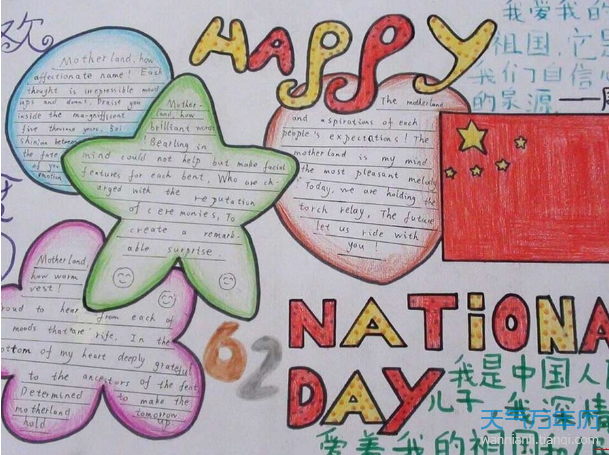 欢
HAPPY
我爱我的
祖国,它是
我们自信心
的泉源
Motherland, how
affectionate name! Each
thought is irrepressible mood
ups and downs. Praise you
inside the magnificent
five thousand years. Sai
shinian between
the fate
of you
emotion
Mother-
land, how
brilliant word!
Bearing in
mind could not help but make facial
features for each bent. Who are ch-
arged with the reputation
of ceremonies, To
create a remark-
able surprise
The motherland
and aspirations of each
people's expectations! The
motherland is my mind.
the most pleasant melody
Today, we are holding the
torch relay, The future
let us ride with
you!
Motherland,
how warm
vest!
roud to hear from each of
moods that are rife. In the
ottom of my heart deeply grateful
to the ancestors of the feat
Determined to make the
motherland tomorrow
hold up
62
NATIONA
DAY
我是中国人民
儿子 我深情
爱着我的祖国和人
天气万年历
wannianli.tianqi.com